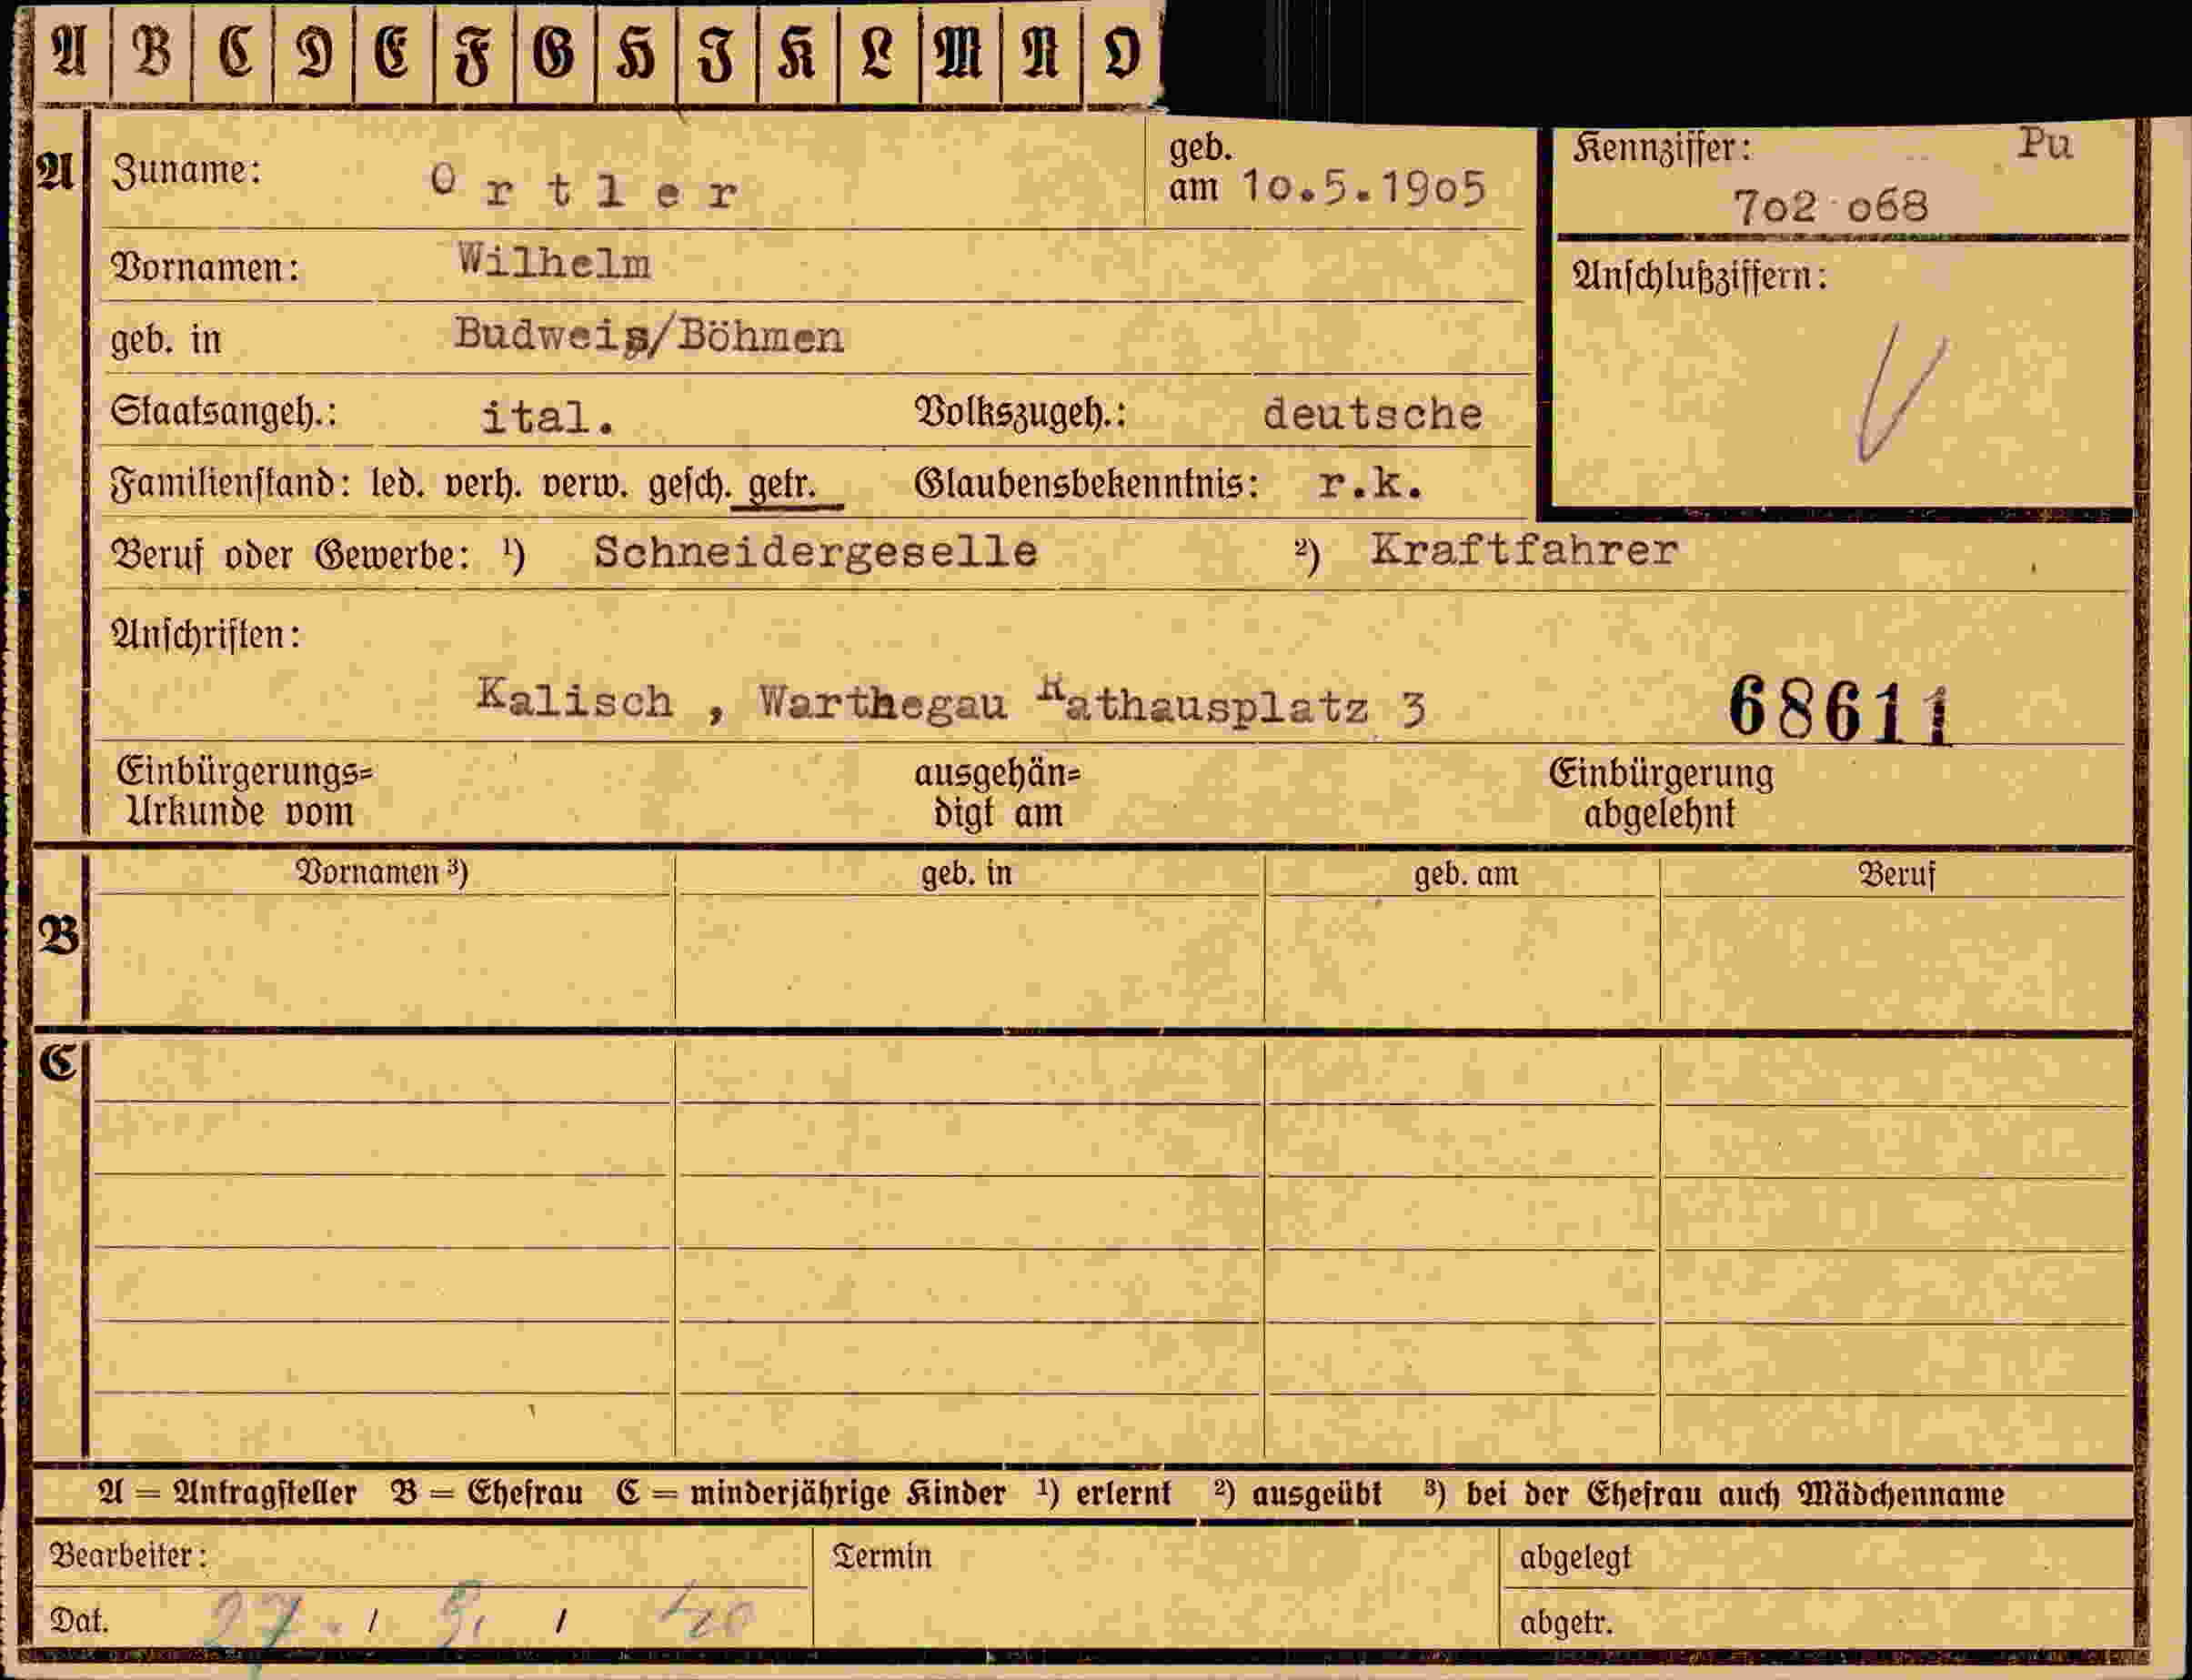 A B C D E F G H I K L M N O
A Zuname: Ortler geb. am 10.5.1905 Kennziffer: Pu
702 068
Vornamen: Wilhelm Anschlußziffern:
geb. in Budweis/Böhmen
Staatsangeh.: ital. Volkszugeh.: deutsche
Familienstand: led. verh. verw. gesch. getr. Glaubensbekenntnis: r.k.
Beruf oder Gewerbe: ¹) Schneidergeselle ²) Kraftfahrer
Anschriften:
Kalisch , Warthegau Rathausplatz 3 68611
Einbürgerungs= ausgehän= Einbürgerung
Urkunde vom digt am abgelehnt
Vornamen ³) geb. in geb. am Beruf
B
C
A = Antragsteller B = Ehefrau C = minderjährige Kinder ¹) erlernt ²) ausgeübt ³) bei der Ehefrau auch Mädchenname
Bearbeiter: Termin abgelegt
Dat. 27. / 9. / 40 abgetr.